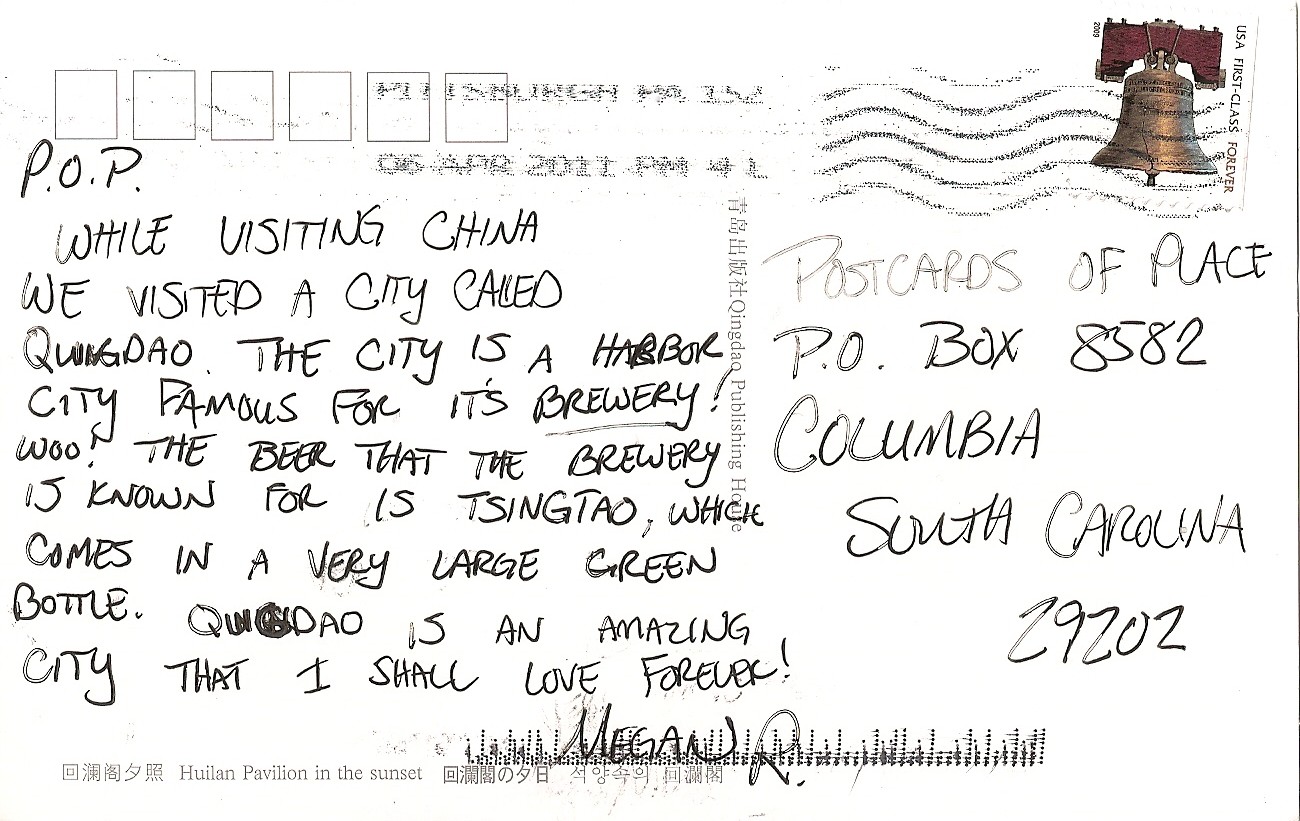 PITTSBURGH PA 152
06 APR 2011 PM 4 L
2009
USA FIRST-CLASS FOREVER
P.O.P.
WHILE VISITING CHINA
WE VISITED A CITY CALLED
QUINGDAO. THE CITY IS A HARBOR
CITY FAMOUS FOR IT'S BREWERY!
WOO! THE BEER THAT THE BREWERY
IS KNOWN FOR IS TSINGTAO, WHICH
COMES IN A VERY LARGE GREEN
BOTTLE. QUINGDAO IS AN AMAZING
CITY THAT I SHALL LOVE FOREVER!
MEGAN R.
青岛出版社Qingdao Publishing House
POSTCARDS OF PLACE
P.O. BOX 8582
COLUMBIA
SOUTH CAROLINA
29202
回澜阁夕照 Huilan Pavilion in the sunset 回瀾閣の夕日 석양속의 回瀾閣